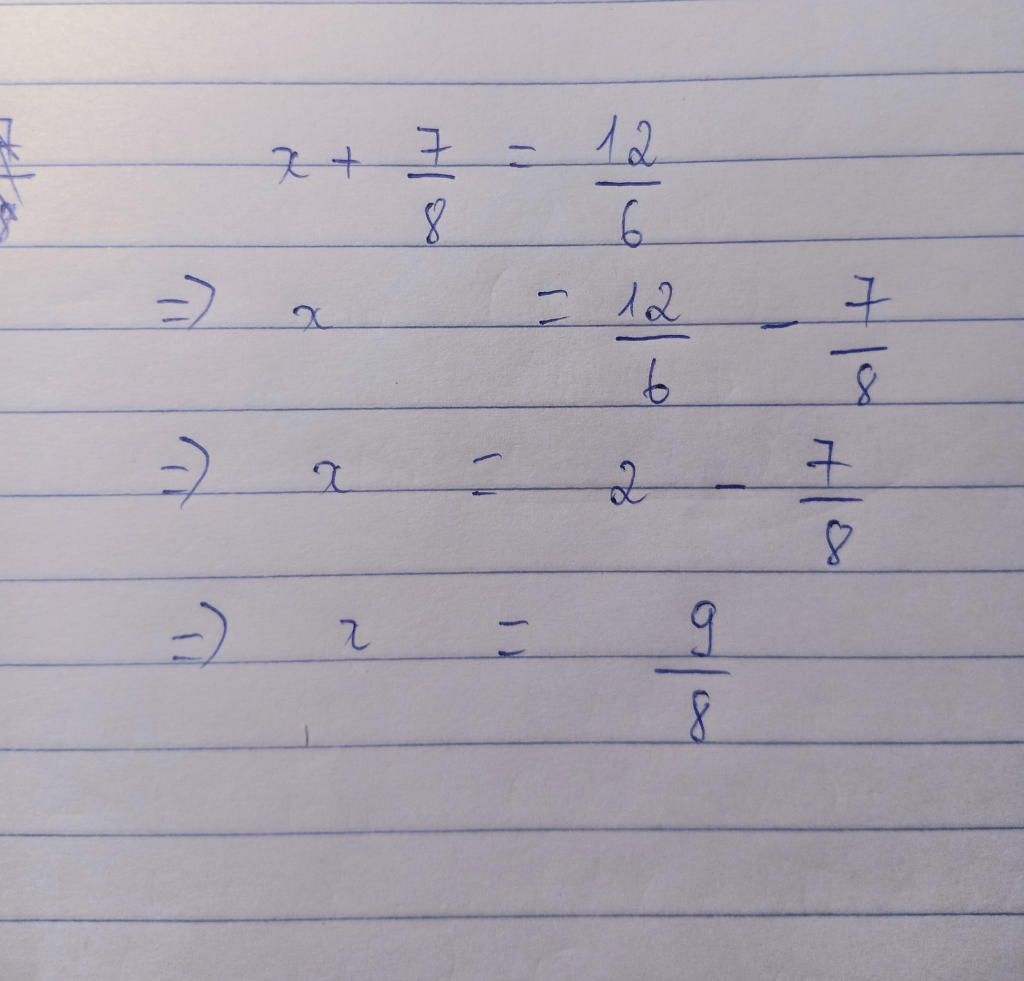 x + 7/8 = 12/6
=> x = 12/6 - 7/8
=> x = 2 - 7/8
=> x = 9/8